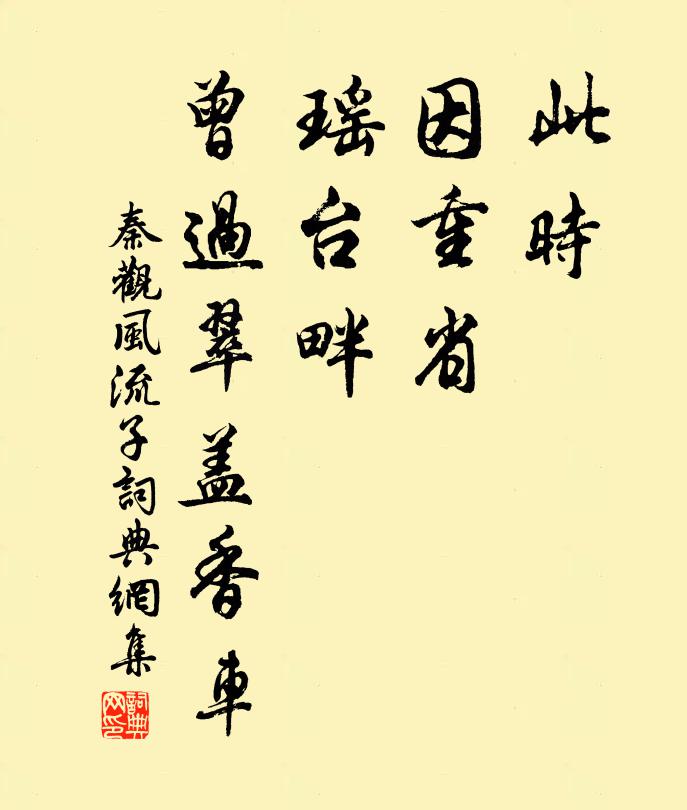 此時
因重省
瑶台畔
曾過翠蓋香車
秦觀風流子詞典網集
詞典
网印